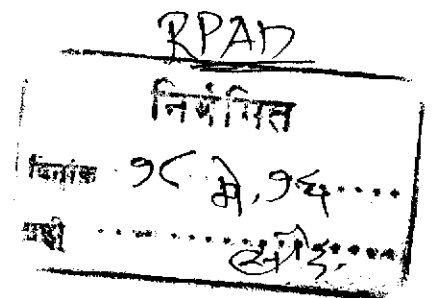 RPAD
निर्गमित
दिनांक १८ मे, १६....
सही ..............